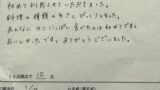 初めて利用させていただきました。
料理の種類の多さにびっくりしました。
あんなにカニいっぱい食べたのは初めてです。
おいしかったです。ありがとうございました。
10点満点中 10 点